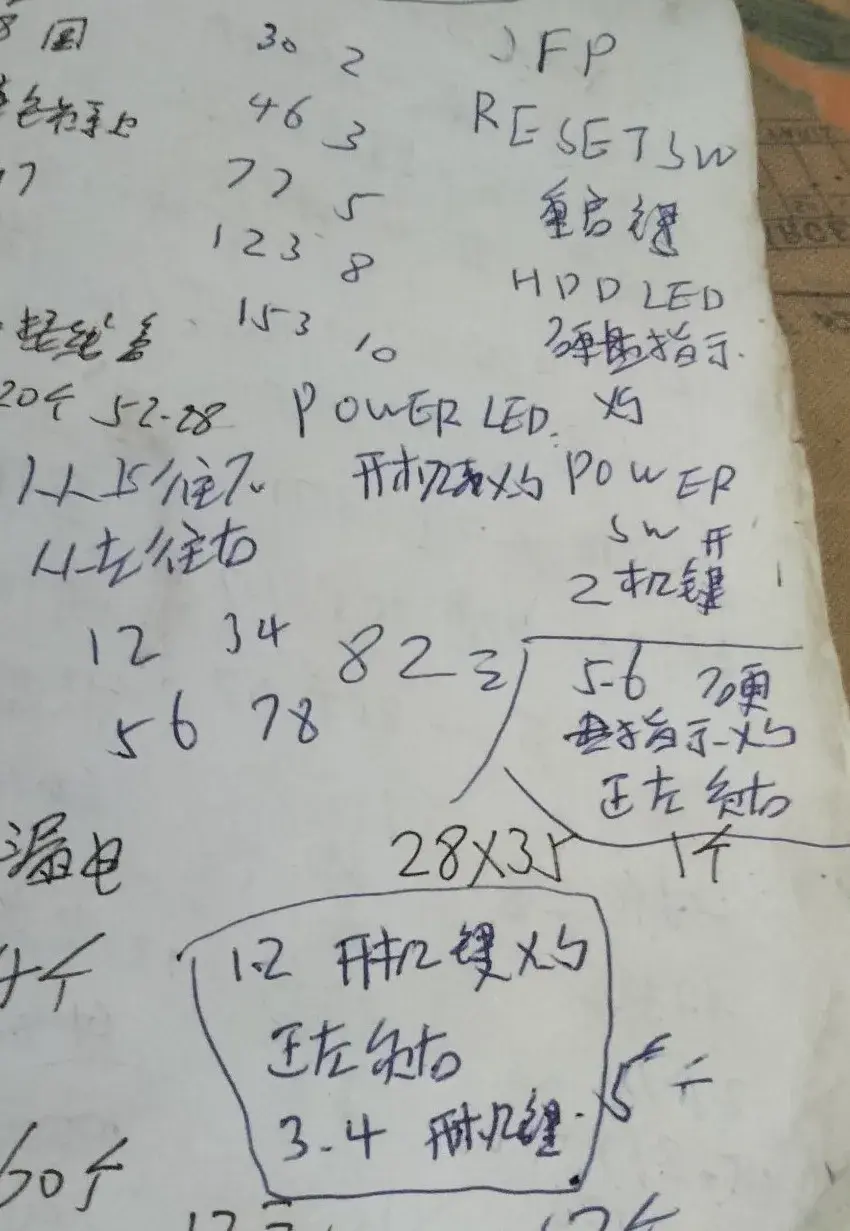 8 国 30 2 JFP
46 3 RESET SW
7 77 5 重启键
123 8 HDD LED
153 10 硬盘指示
20个 52-28 POWER LED 灯
从上往下 开机灯 POWER
从左往右 SW 开
2 机键
12 34 82 5-6 硬
56 78 盘指示灯
正左负右
漏电 28X35 1个
4个 1.2 开机键灯
正左负右
3.4 开机键
60个